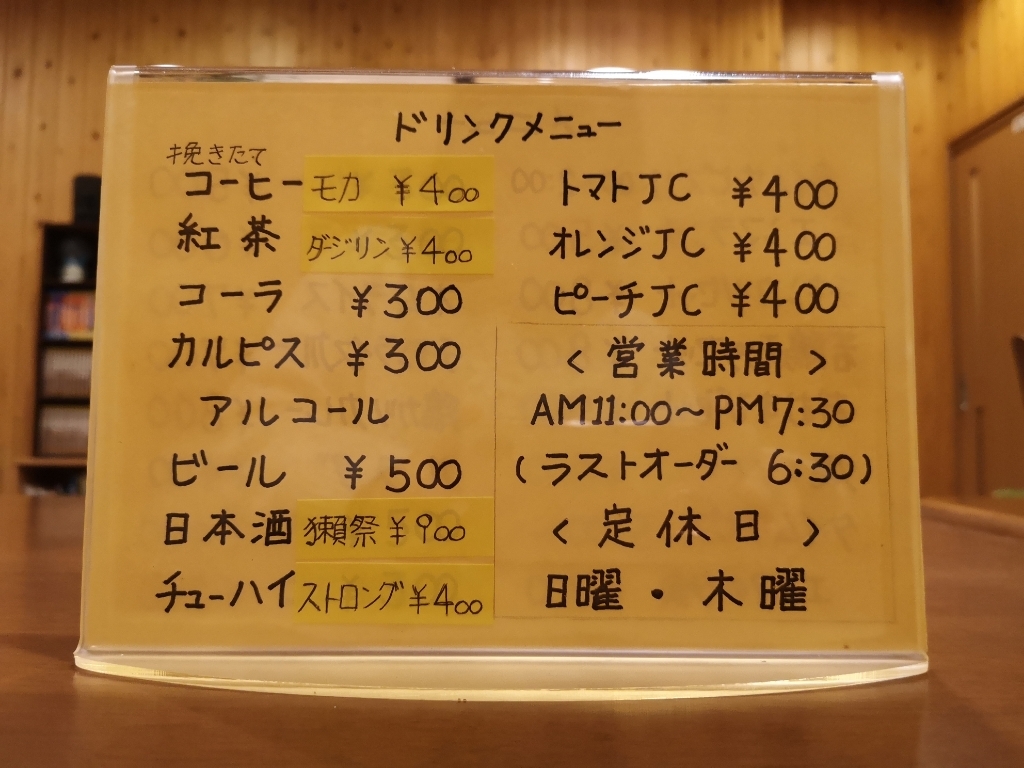 ドリンクメニュー
挽きたて
コーヒー モカ ¥400
紅茶 ダジリン ¥400
コーラ ¥300
カルピス ¥300
アルコール
ビール ¥500
日本酒 獺祭 ¥900
チューハイ ストロング ¥400
トマトJC ¥400
オレンジJC ¥400
ピーチJC ¥400
<営業時間>
AM11:00~PM7:30
(ラストオーダー 6:30)
<定休日>
日曜・木曜